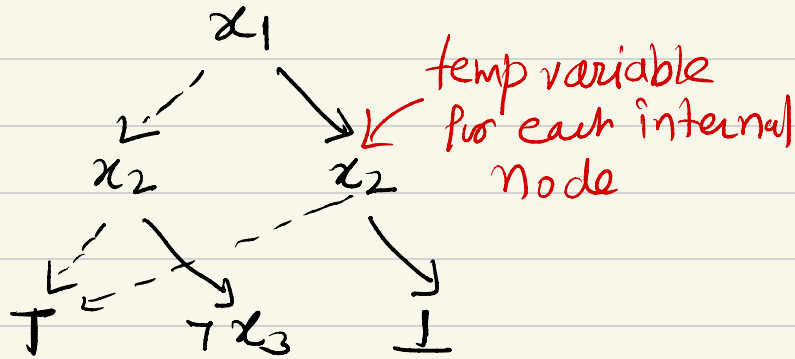 x₁
temp variable
for each internal
node
x₂ x₂
⊤ ¬x₃ ⊥